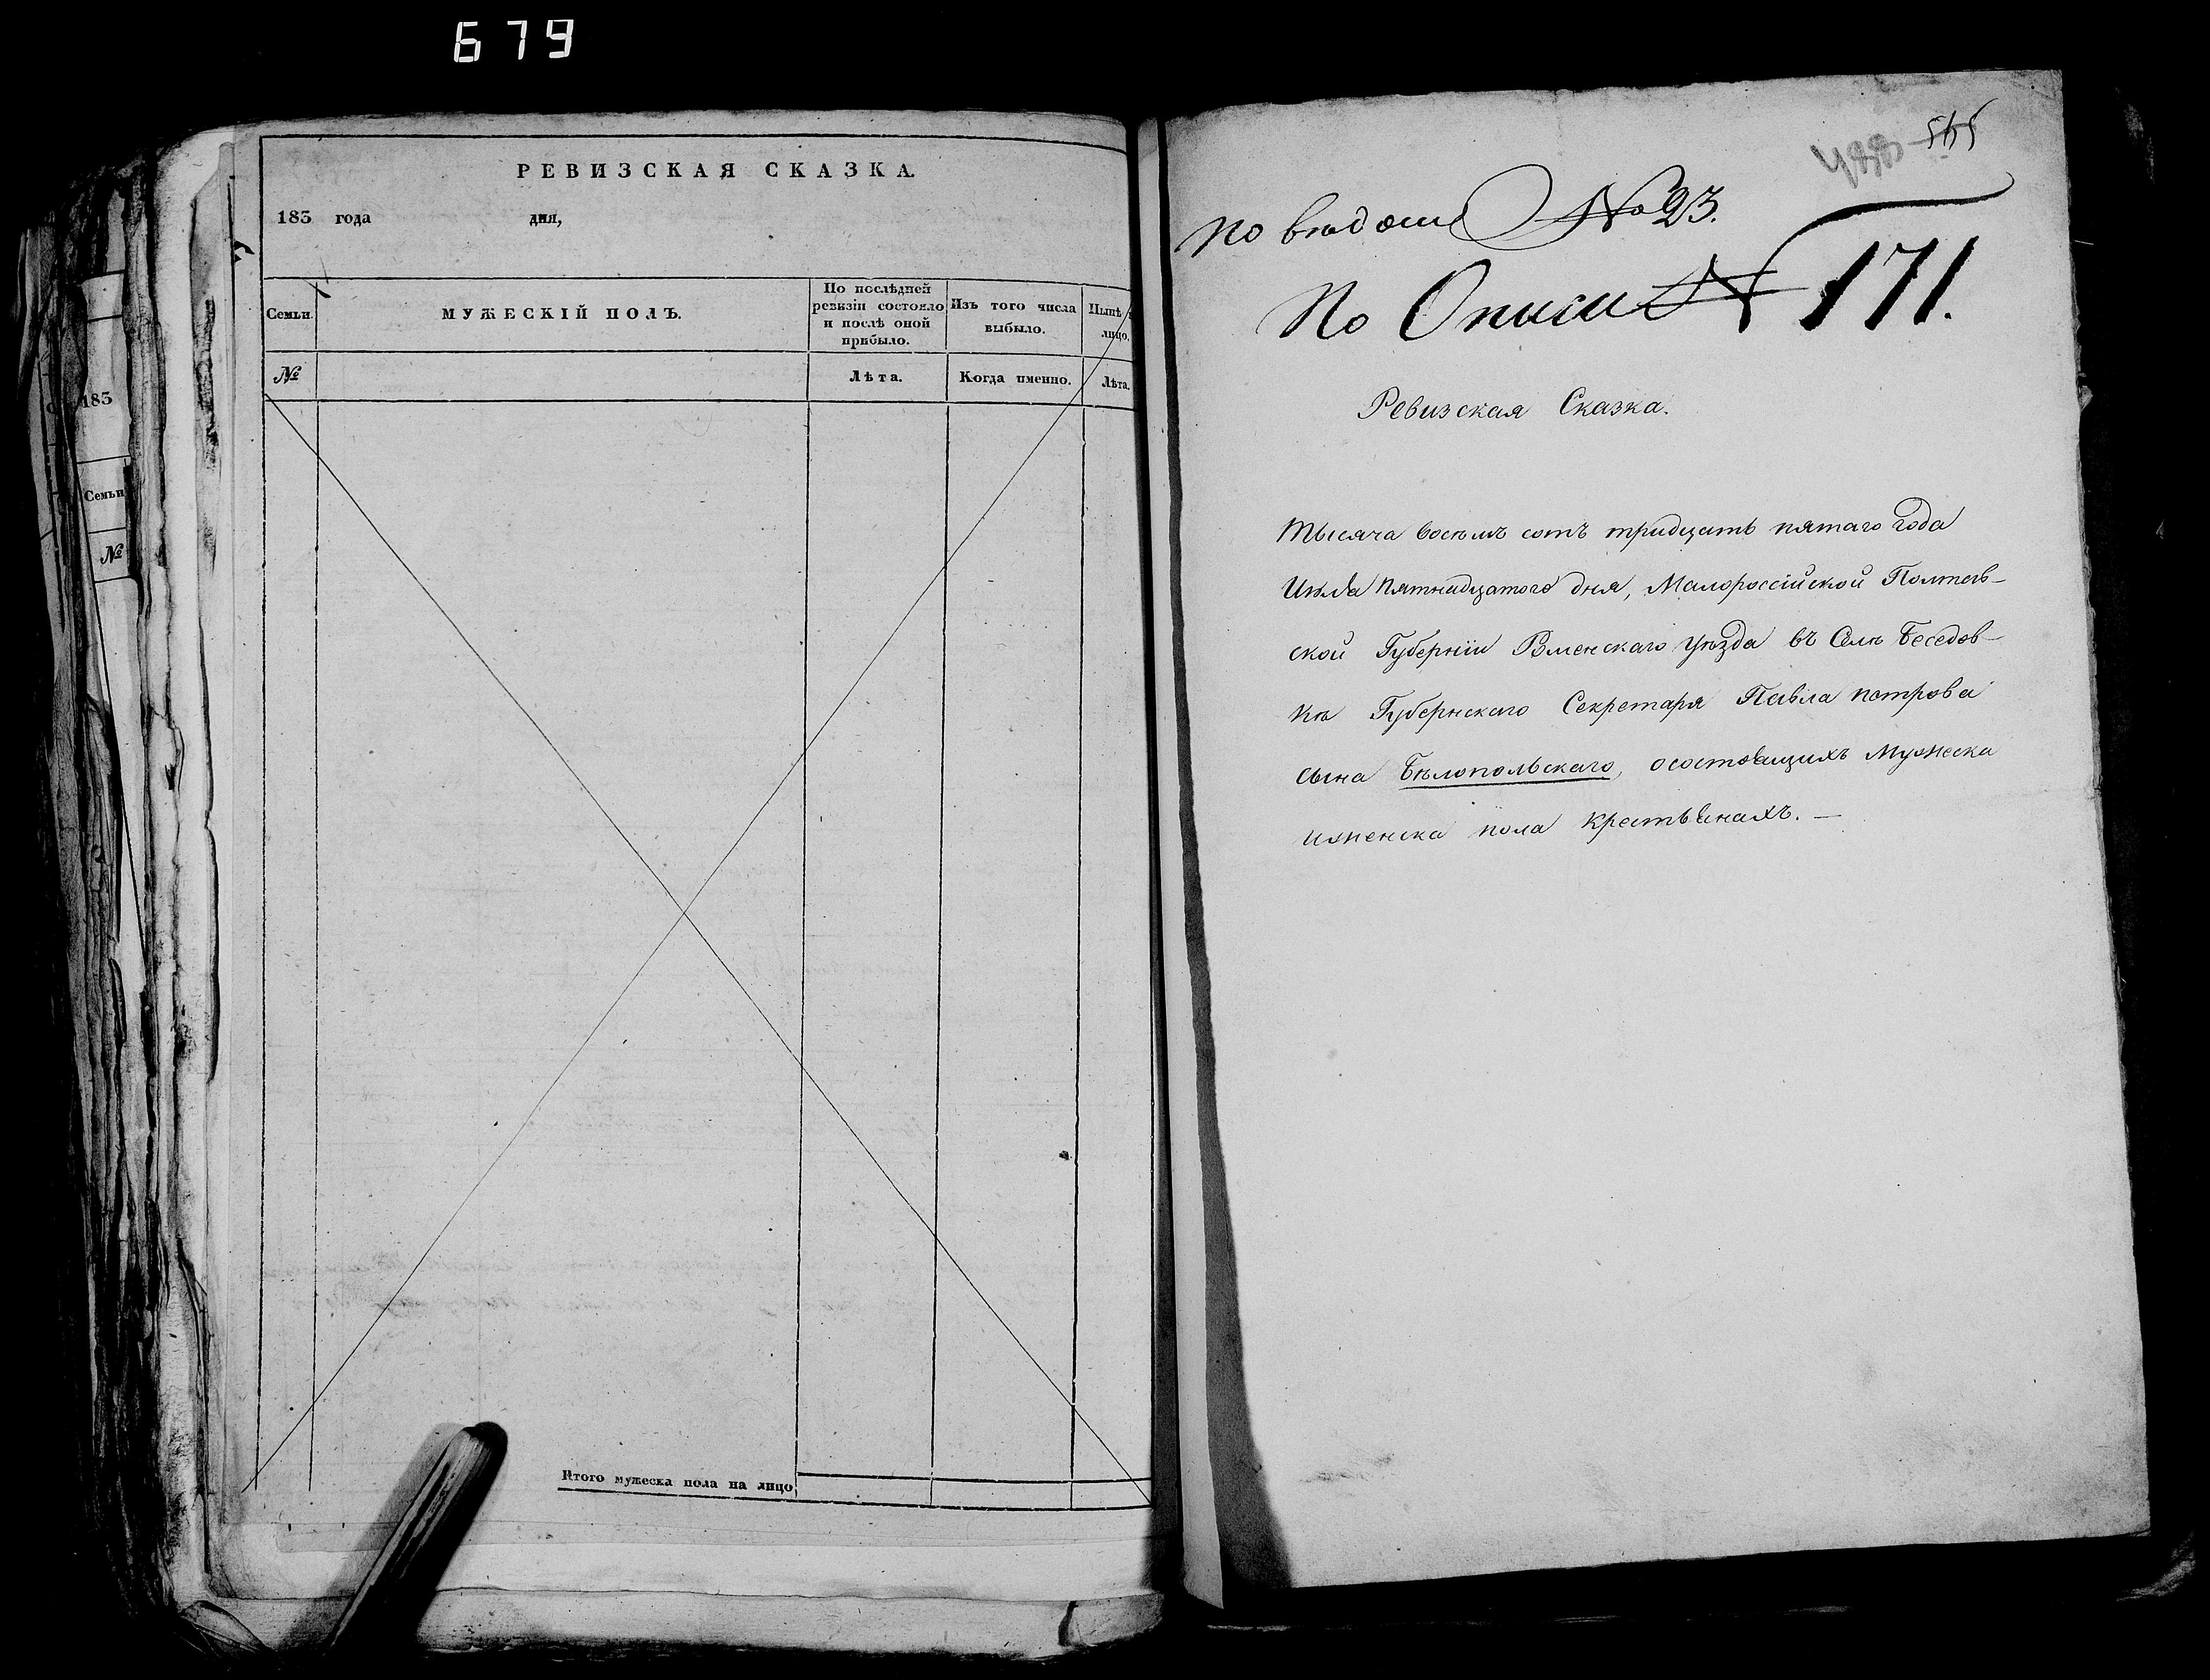 679
РЕВИЗСКАЯ СКАЗКА.
183 года дня,
Семьи. МУЖЕСКІЙ ПОЛЪ. По послѣдней ревизіи состояло и послѣ оной прибыло. Изъ того числа выбыло. Нынѣ лицо.
№ Лѣта. Когда именно. Лѣта.
Итого мужеска пола на лицо
183
Семьи
№
545
по вѣдом № 23.
По Описи № 171.
Ревизская Сказка.
Тысяча восѣмъ сотъ тридцать пятаго года
Пятнадцатого дня, Малороссійской Полтав–
ской Губерніи Роменскаго уѣзда въ Селѣ Беседов–
кѣ Губернскаго Секретаря Павла петрова
сына Бѣлопольскаго, осостоящихъ Мужеска
иженска пола крестьянахъ. –